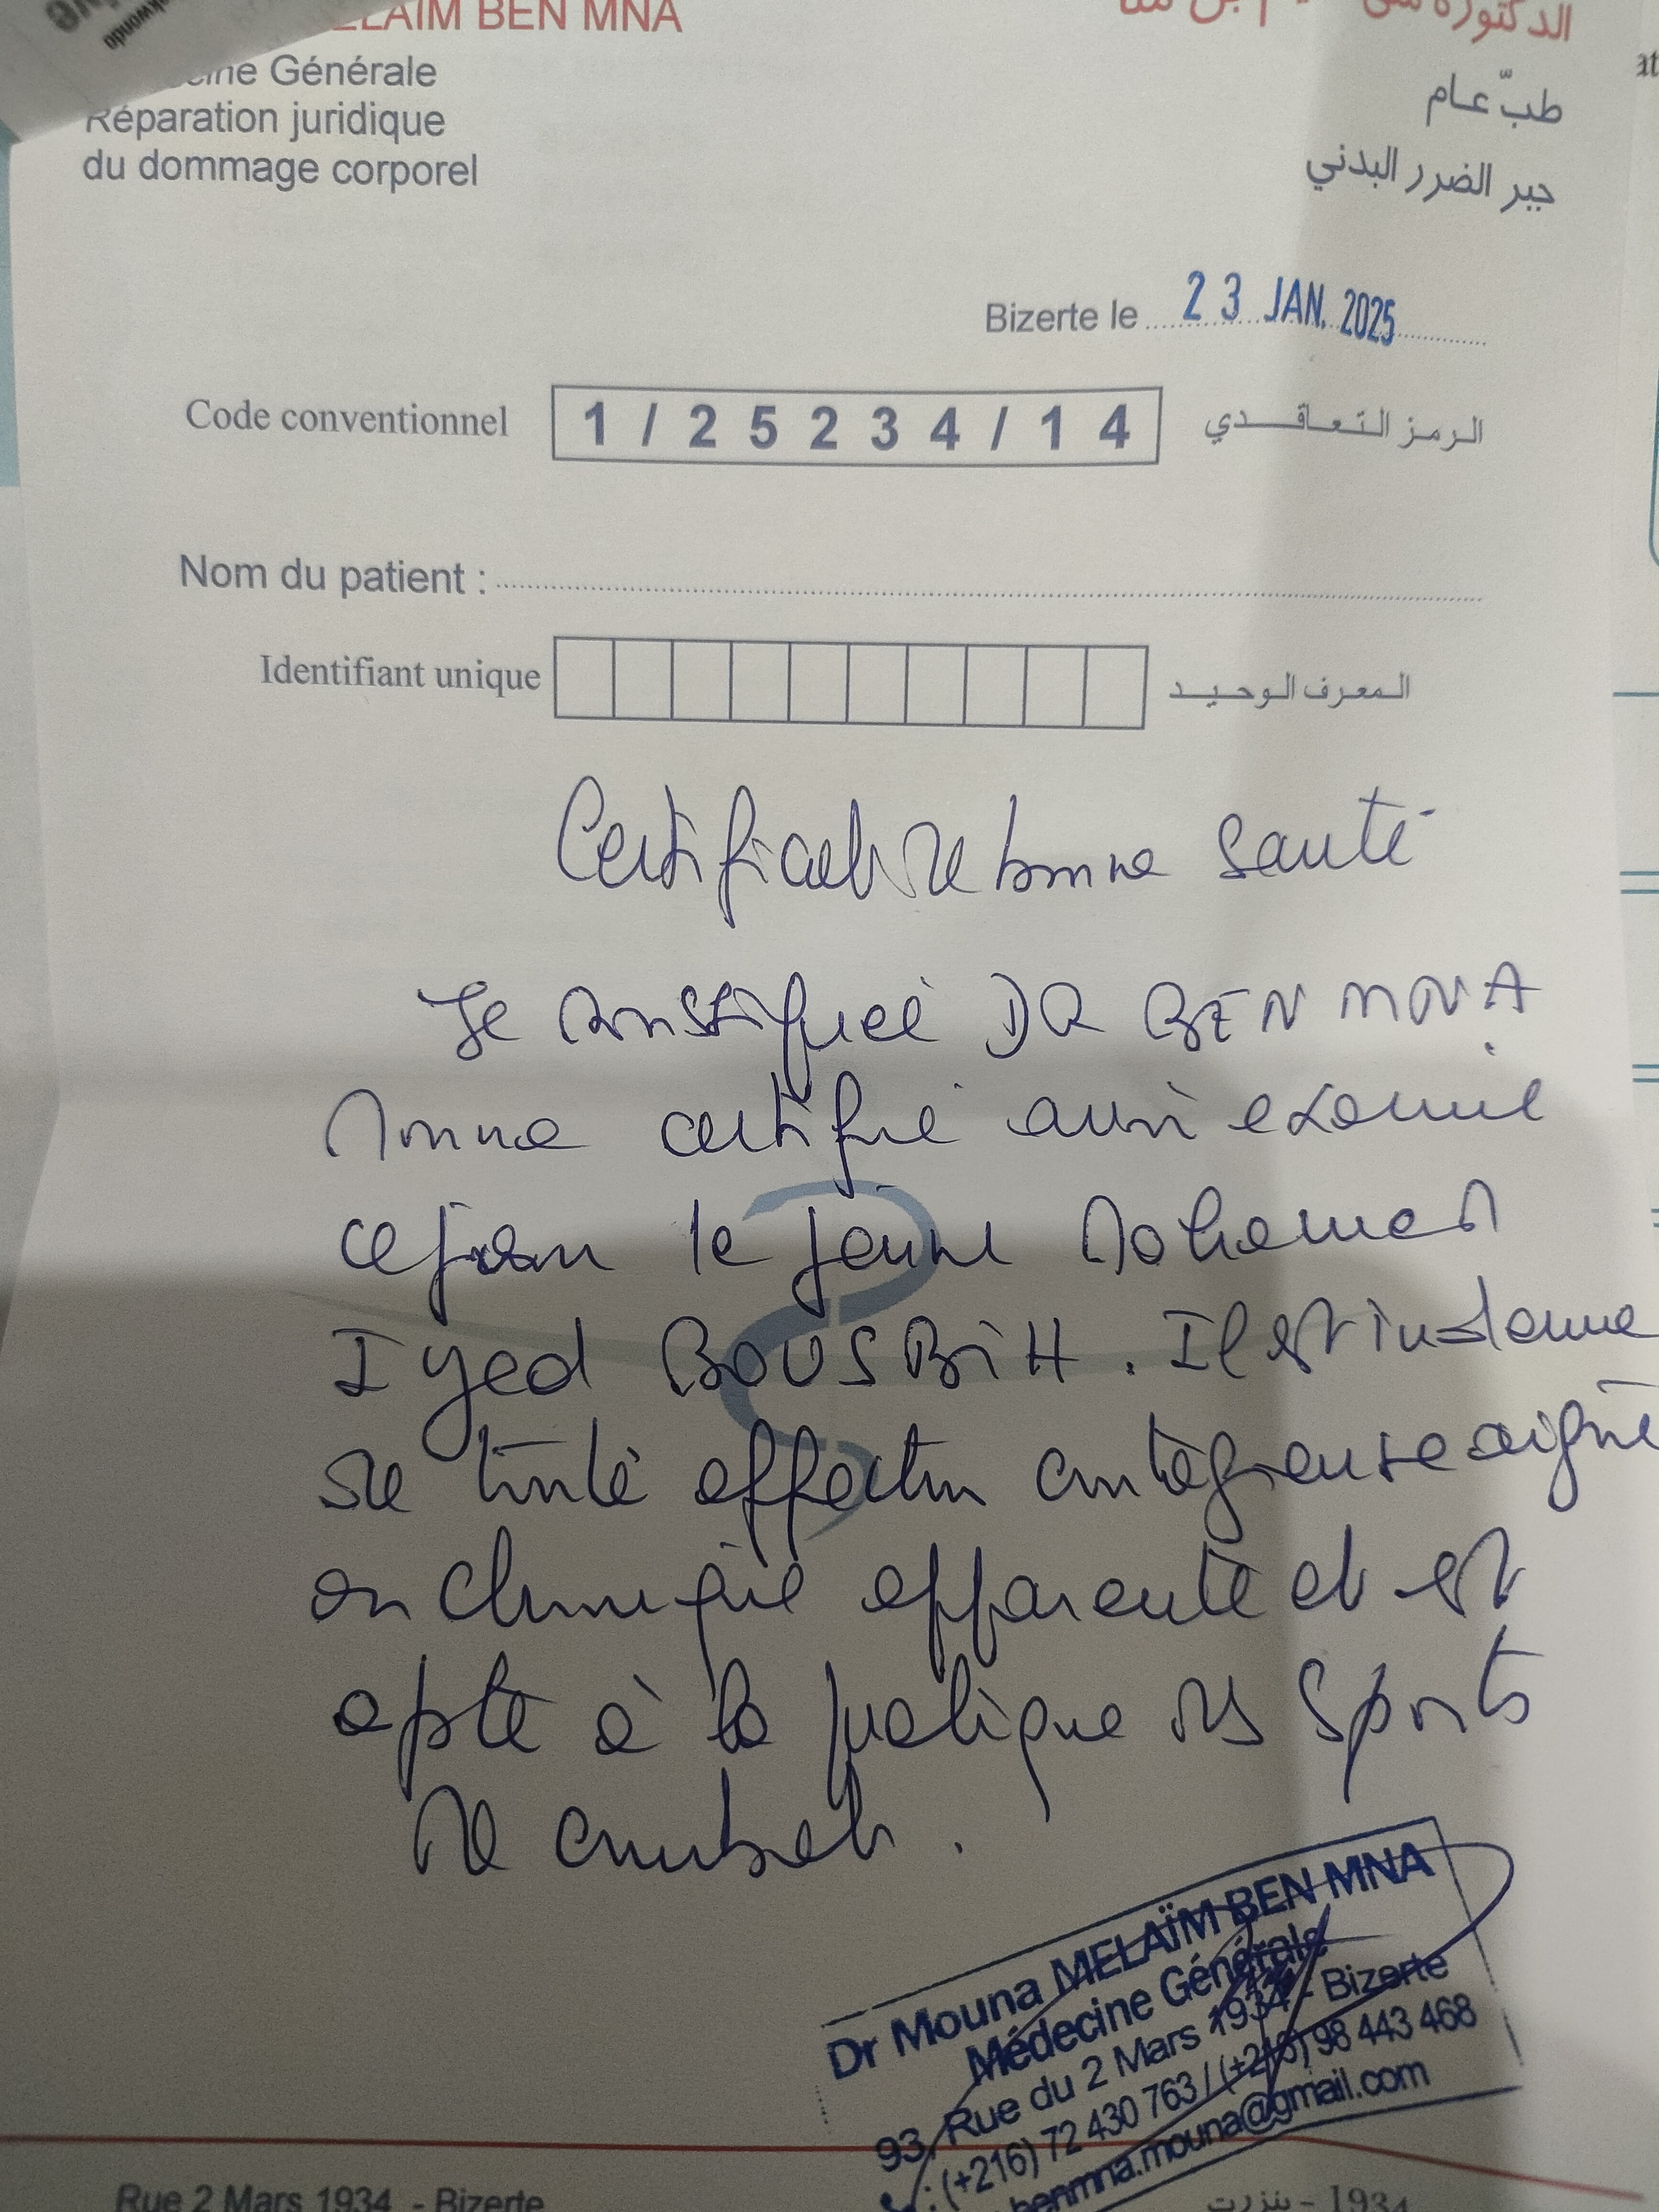 MELAÏM BEN MNA
الدكتورة
Générale
طبّ عـام
Réparation juridique
du dommage corporel
جبر الضرر البدني
Bizerte le 23 JAN. 2025
Code conventionnel 1 / 2 5 2 3 4 / 1 4 الرمز التعاقدي
Nom du patient :
Identifiant unique المعرف الوحيد
Certificat de bonne santé
Je soussignée DR BEN MNA
Mouna certifie avoir examiné
ce jour le jeune Mohamed
Iyed BOUSBIH. Il est indemne
de toute affection contagieuse aigüe
ou chirurgie apparente et est
apte à la pratique des sports
de combat.
Dr Mouna MELAÏM BEN MNA
Médecine Générale
93, Rue du 2 Mars 1934 - Bizerte
(+216) 72 430 763 / (+216) 98 443 468
benmna.mouna@gmail.com
Rue 2 Mars 1934 - Bizerte
1934 - بنزرت